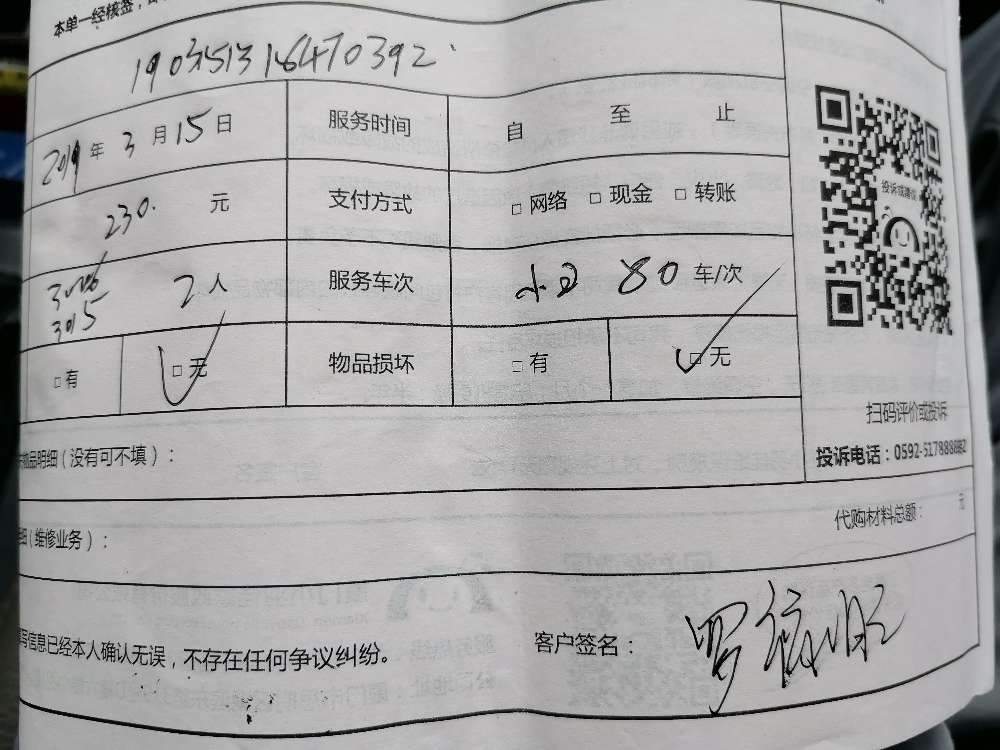 本单一经核签，
190351318470392
2019 年 3 月 15 日 服务时间 自 至 止
230. 元 支付方式 □ 网络 □ 现金 □ 转账
3015 2 人 服务车次 80 车/次
□ 有 □ 无 物品损坏 □ 有 □ 无
投诉或建议
扫码评价或投诉
投诉电话：0592-5178888
物品明细（没有可不填）：
细（维修业务）： 代购材料总额： 元
写信息已经本人确认无误，不存在任何争议纠纷。 客户签名：